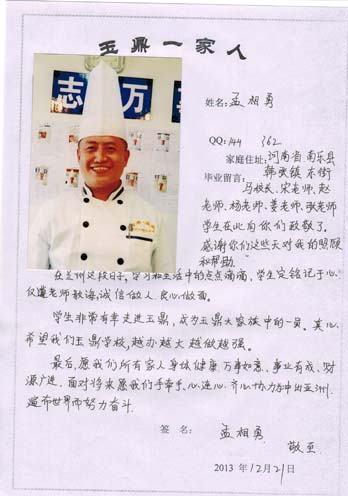 玉鼎一家人
志 万
姓名：孟相勇
QQ：144 362
家庭住址：河南省南乐县
韩张镇东街
毕业留言：马校长、宋老师、赵
老师、杨老师、姜老师、张老师
学生在此向你们致敬了。
感谢你们这些天对我的照顾
和帮助。
在兰州这段日子。学习和生活中的点点滴滴，学生定铭记于心。
仅遵老师教诲，诚信做人、良心做面。
学生非常有幸走进玉鼎，成为玉鼎大家族中的一员。真心
希望我们玉鼎学校，越办越大越做越强。
最后，愿我们所有家人身体健康万事如意、事业有成、财
源广进，面对将来愿我们手牵手、心连心、齐心协力冲出亚洲，
遍布世界而努力奋斗。
签名：孟相勇
敬上
2013年12月21日